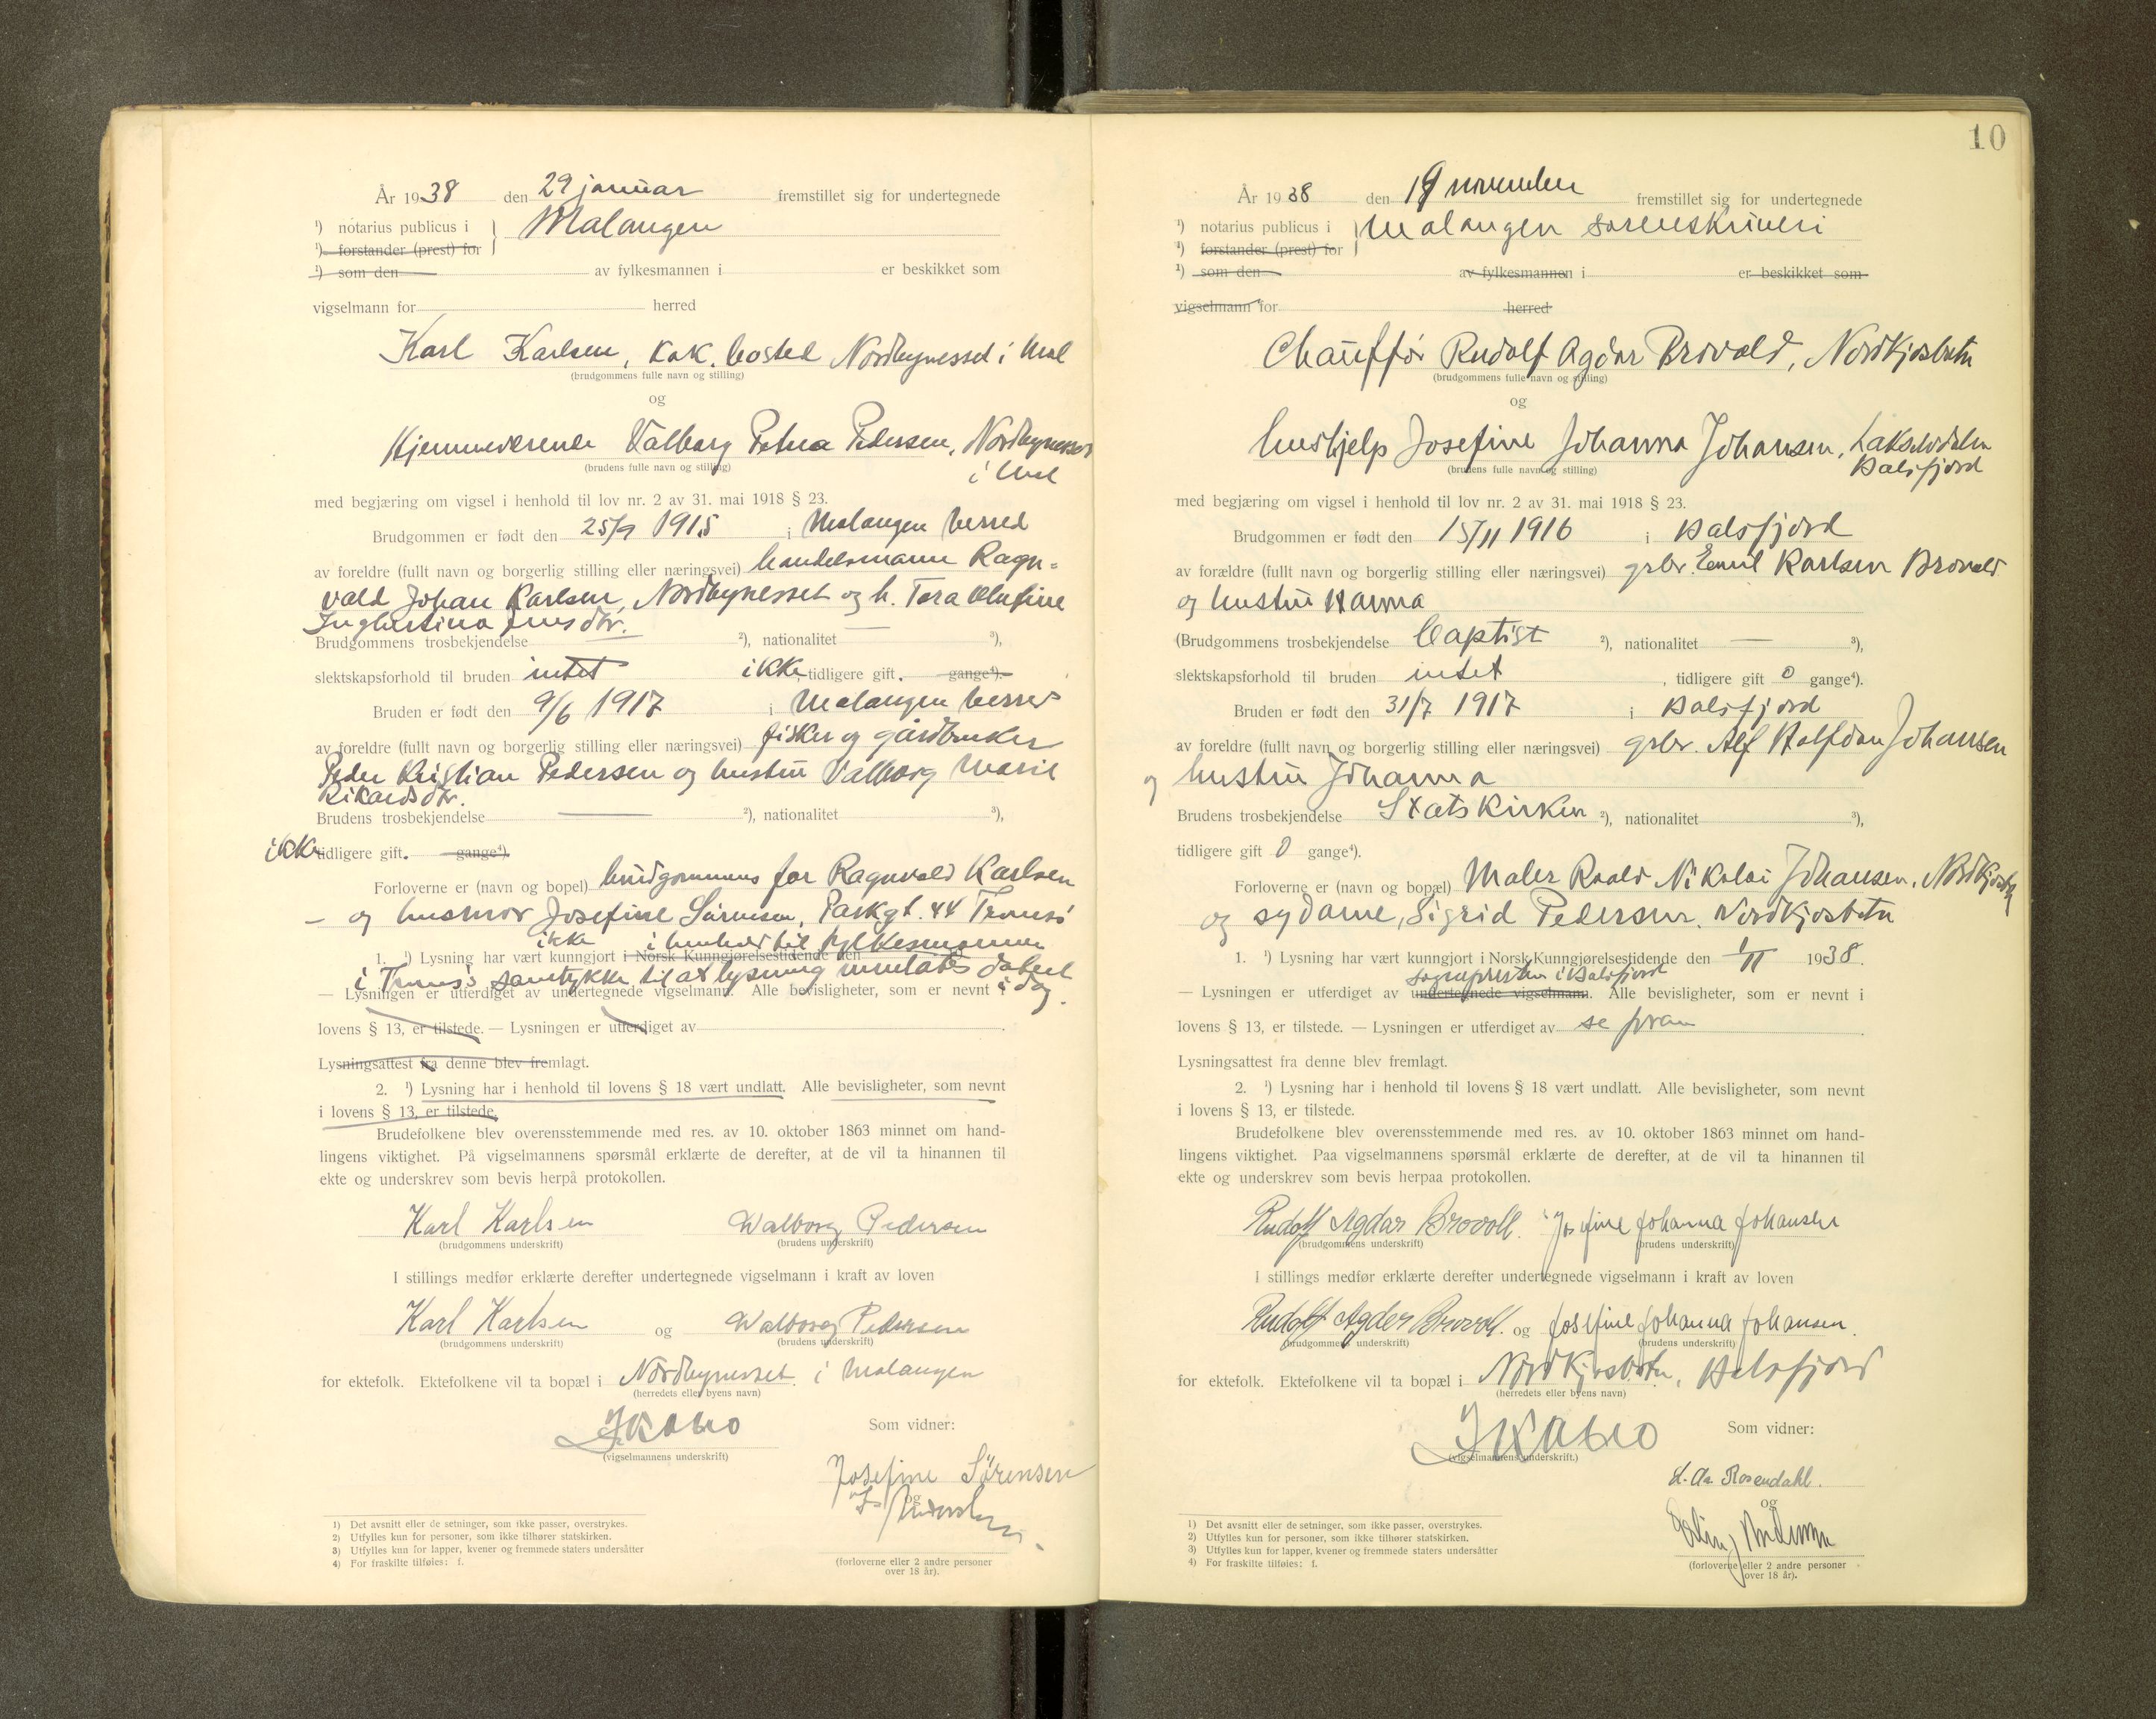 År 1938 den 29 januar fremstillet sig for undertegnede
¹) notarius publicus i } Malangen
¹) forstander (prest) for
¹) som den av fylkesmannen i er beskikket som
vigselmann for herred
Karl Karlsen, kok, bosted Nordbynesset i Mal
(brudgommens fulle navn og stilling)
og
Hjemmeværende Valborg Petra Pedersen, Nordbynesset
(brudens fulle navn og stilling)
i Mal
med begjæring om vigsel i henhold til lov nr. 2 av 31. mai 1918 § 23.
Brudgommen er født den 25/9 1915 i Malangen herred
av foreldre (fullt navn og borgerlig stilling eller næringsvei) handelsmann Ragn-
vald Johan Karlsen, Nordbynesset og h. Tora Olufine
Brudgommens trosbekjendelse ²), nationalitet — ³),
slektskapsforhold til bruden intet ikke tidligere gift. gange⁴).
Bruden er født den 9/6 1917 i Malangen herred
av foreldre (fullt navn og borgerlig stilling eller næringsvei) fisker og gårdbruker
Peder Kristian Pedersen og hustru Valborg Marie
Rikardsdtr.
Brudens trosbekjendelse — ²), nationalitet ³),
ikke tidligere gift. gange⁴).
Forloverne er (navn og bopel) brudgommens far Ragnvald Karlsen
— og husmor Josefine Sörensen, Parkgt. 44 Tromsö
ikke i henhold til fylkesmannen
1. ¹) Lysning har vært kunngjort i Norsk Kunngjørelsestidende den
i Troms's samtykke til at lysning undlates datert
— Lysningen er utferdiget av undertegnede vigselmann. Alle bevisligheter, som er nevnt i dag.
lovens § 13, er tilstede. — Lysningen er utferdiget av .
Lysningsattest fra denne blev fremlagt.
2. ¹) Lysning har i henhold til lovens § 18 vært undlatt. Alle bevisligheter, som nevnt
i lovens § 13, er tilstede.
Brudefolkene blev overensstemmende med res. av 10. oktober 1863 minnet om hand-
lingens viktighet. På vigselmannens spørsmål erklærte de derefter, at de vil ta hinannen til
ekte og underskrev som bevis herpå protokollen.
Karl Karlsen Walborg Pedersen
(brudgommens underskrift) (brudens underskrift)
I stillings medfør erklærte derefter undertegnede vigselmann i kraft av loven
Karl Karlsen og Walborg Pedersen
(brudgommens underskrift) (brudens underskrift)
for ektefolk. Ektefolkene vil ta bopæl i Nordbynesset i Malangen
(herredets eller byens navn)
Som vidner:
(vigselmannens underskrift)
Josefine Sörensen
og
1) Det avsnitt eller de setninger, som ikke passer, overstrykes.
2) Utfylles kun for personer, som ikke tilhører statskirken.
3) Utfylles kun for lapper, kvener og fremmede staters undersåtter
4) For fraskilte tilføies: f.
(forloverne eller 2 andre personer
over 18 år).
10
År 1938 den 19 november fremstillet sig for undertegnede
¹) notarius publicus i } Malangen sorenskriveri
¹) forstander (prest) for
¹) som den av fylkesmannen i er beskikket som
vigselmann for herred
Chauffør Rudolf Agdar Brovold, Nordkjosbotn
(brudgommens fulle navn og stilling)
og
hushjelp Josefine Johanna Johansen, Lakselvdalen
(brudens fulle navn og stilling) Balsfjord
med begjæring om vigsel i henhold til lov nr. 2 av 31. mai 1918 § 23.
Brudgommen er født den 15/11 1916 i Balsfjord
av forældre (fullt navn og borgerlig stilling eller næringsvei) grbr. Emil Karlsen Brovold
og hustru Hanna
(Brudgommens trosbekjendelse Baptist ²), nationalitet — ³),
slektskapsforhold til bruden intet , tidligere gift 0 gange⁴).
Bruden er født den 31/7 1917 i Balsfjord
av foreldre (fullt navn og borgerlig stilling eller næringsvei) grbr. Alf Halfdan Johansen
og hustru Johanna
Brudens trosbekjendelse Statskirken ²), nationalitet ³),
tidligere gift 0 gange⁴).
Forloverne er (navn og bopæl) Maler Roald Nikolai Johansen, Nordkjosbtn
og sydame, Sigrid Pedersen, Nordkjosbotn
1. ¹) Lysning har vært kunngjort i Norsk Kunngjørelsestidende den 1/11 1938.
sognepresten i Balsfjord
— Lysningen er utferdiget av undertegnede vigselmann. Alle bevisligheter, som er nevnt i
lovens § 13, er tilstede. — Lysningen er utferdiget av se foran .
Lysningsattest fra denne blev fremlagt.
2. ¹) Lysning har i henhold til lovens § 18 vært undlatt. Alle bevisligheter, som nevnt
i lovens § 13, er tilstede.
Brudefolkene blev overensstemmende med res. av 10. oktober 1863 minnet om hand-
lingens viktighet. Paa vigselmannens spørsmål erklærte de derefter, at de vil ta hinannen til
ekte og underskrev som bevis herpaa protokollen.
Rudolf Agdar Brovoll. Josefine Johanna Johansen
(brudgommens underskrift) (brudens underskrift)
I stillings medfør erklærte derefter undertegnede vigselmann i kraft av loven
Rudolf Agdar Brovoll. og Josefine Johanna Johansen.
(brudgommens underskrift) (brudens underskrift)
for ektefolk. Ektefolkene vil ta bopæl i Nordkjosbotn, Balsfjord
(herredets eller byens navn)
Som vidner:
(vigselmannens underskrift.)
Rosendahl.
og
1) Det avsnitt eller de setninger, som ikke passer, overstrykes.
2) Utfylles kun for personer, som ikke tilhører statskirken.
3) Utfylles kun for lapper, kvener og fremmede staters undersåtter
4) For fraskilte tilføies: f.
(forloverne eller 2 andre personer
over 18 år).